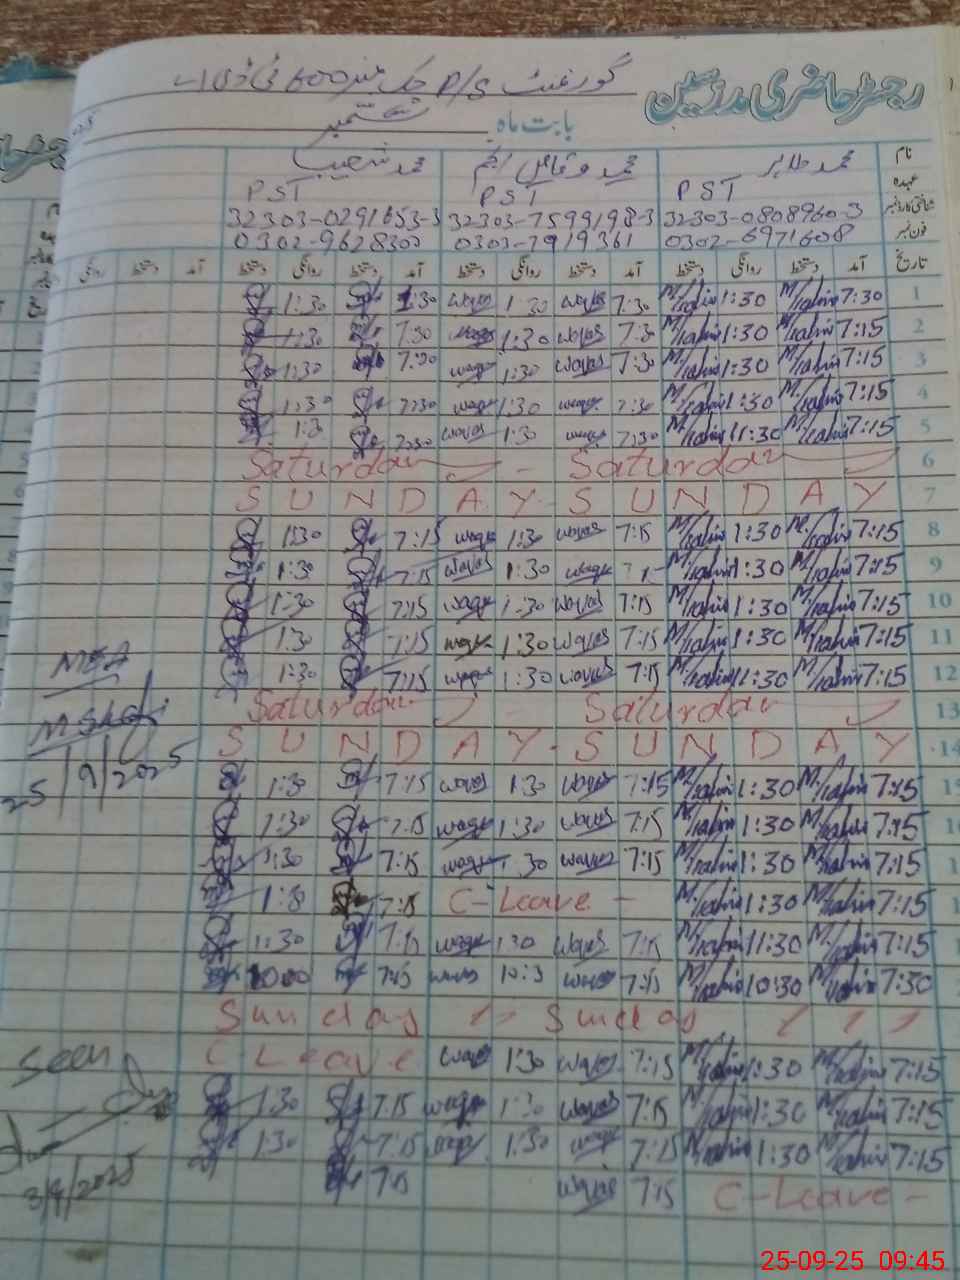 گورنمنٹ P/S چک نمبر 600
رجسٹر حاضری مدرسین
بابت ماہ ستمبر
نام محمد طاہر محمد وقاص انجم محمد شعیب
عہدہ PST PST PST
شناختی کارڈ نمبر 32303-0808960-3 32303-7599198-3 32303-0291653-3
فون نمبر 0302-6971608 0303-7919361 0302-9628302
تاریخ آمد دستخط روانگی دستخط آمد دستخط روانگی دستخط آمد دستخط روانگی دستخط آمد دستخط روانگی
1:30 1:30 waqas 1:30 waqas 7:30 M/Tahir 1:30 M/Tahir 7:30 1
1:30 7:30 waqas 1:30 waqas 7:30 M/Tahir 1:30 M/Tahir 7:15 2
1:30 7:30 waqas 1:30 waqas 7:30 M/Tahir 1:30 M/Tahir 7:15 3
1:30 7:30 waqas 1:30 waqas 7:30 M/Tahir 1:30 M/Tahir 7:15 4
1:30 7:30 waqas 1:30 waqas 7:30 M/Tahir 1:30 M/Tahir 7:15 5
Saturday - Saturday 6
S U N D A Y - S U N D A Y 7
1:30 7:15 waqas 1:30 waqas 7:15 M/Tahir 1:30 M/Tahir 7:15 8
1:30 7:15 waqas 1:30 waqas 7:15 M/Tahir 1:30 M/Tahir 7:15 9
1:30 7:15 waqas 1:30 waqas 7:15 M/Tahir 1:30 M/Tahir 7:15 10
1:30 7:15 waqas 1:30 waqas 7:15 M/Tahir 1:30 M/Tahir 7:15 11
1:30 7:15 waqas 1:30 waqas 7:15 M/Tahir 1:30 M/Tahir 7:15 12
MEA
Saturday - Saturday 13
S U N D A Y - S U N D A Y 14
25/9/2025
1:30 7:15 waqas 1:30 waqas 7:15 M/Tahir 1:30 M/Tahir 7:15
1:30 7:15 waqas 1:30 waqas 7:15 M/Tahir 1:30 M/Tahir 7:15
1:30 7:15 waqas 1:30 waqas 7:15 M/Tahir 1:30 M/Tahir 7:15
7:15 C-Leave - M/Tahir 1:30 M/Tahir 7:15
1:30 7:15 waqas 1:30 waqas 7:15 M/Tahir 1:30 M/Tahir 7:15
10:00 7:15 waqas 10:3 waqas 7:15 M/Tahir 10:30 M/Tahir 7:30
Sunday Sunday
Seen
C Leave waqas 1:30 waqas 7:15 M/Tahir 1:30 M/Tahir 7:15
1:30 7:15 waqas 1:30 waqas 7:15 M/Tahir 1:30 M/Tahir 7:15
1:30 7:15 waqas 1:30 waqas 7:15 M/Tahir 1:30 M/Tahir 7:15
7:15 waqas 7:15 C-Leave -
3/9/2025
25-09-25 09:45